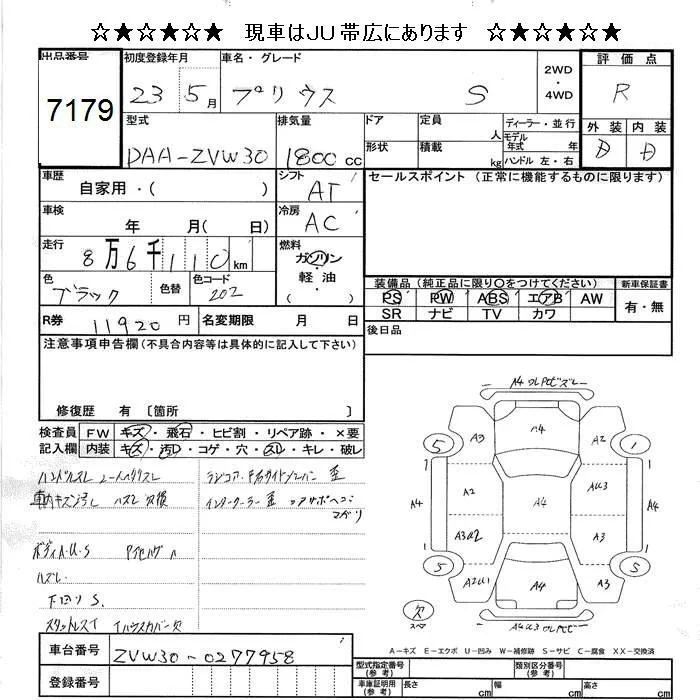 ☆★☆★☆★ 現車はJU帯広にあります ☆★☆★☆★
出品番号 7179
初度登録年月 23 5月
車名・グレード プリウス S
2WD・4WD
評価点 R
外装 内装
D D
型式 DAA-ZVW30
排気量 1800cc
ドア 形状
定員 人
積載 kg
ディーラー・並行
モデル年式 年
ハンドル 左・右
車歴 自家用・( )
シフト AT
セールスポイント(正常に機能するものに限ります)
車検 年 月( 日)
冷房 AC
走行 8万6千110km
燃料 ガソリン・軽油・( )
色 ブラック
色替
色コード 202
装備品(純正品に限り○をつけてください)
PS PW ABS エアB AW
SR ナビ TV カワ
新車保証書 有・無
R券 11920円
名変期限 月 日
後日品
注意事項申告欄(不具合内容等は具体的に記入して下さい)
修復歴 有〔箇所 〕
検査員記入欄
FW キズ・飛石・ヒビ割・リペア跡・×要
内装 キズ・汚レ・コゲ・穴・スレ・キレ・破レ
ハンドルスレ
ラジコア・
インタークーラー 歪
ボディA・U・S
ハズレ
下回りS
スタットレスイ
車台番号 ZVW30-0277958
登録番号
A4
A4
A3 A2
5 1
A4 A2 A4 AU3 A4
A3U2 A3
5 5
A2U1 A4 A3
欠 スペア
A-キズ E-エクボ U-凹み W-補修跡 S-サビ C-腐食 XX-交換済
型式指定番号(参考)
類別区分番号(参考)
車庫証明用(参考) 長さ cm 幅 cm 高さ cm